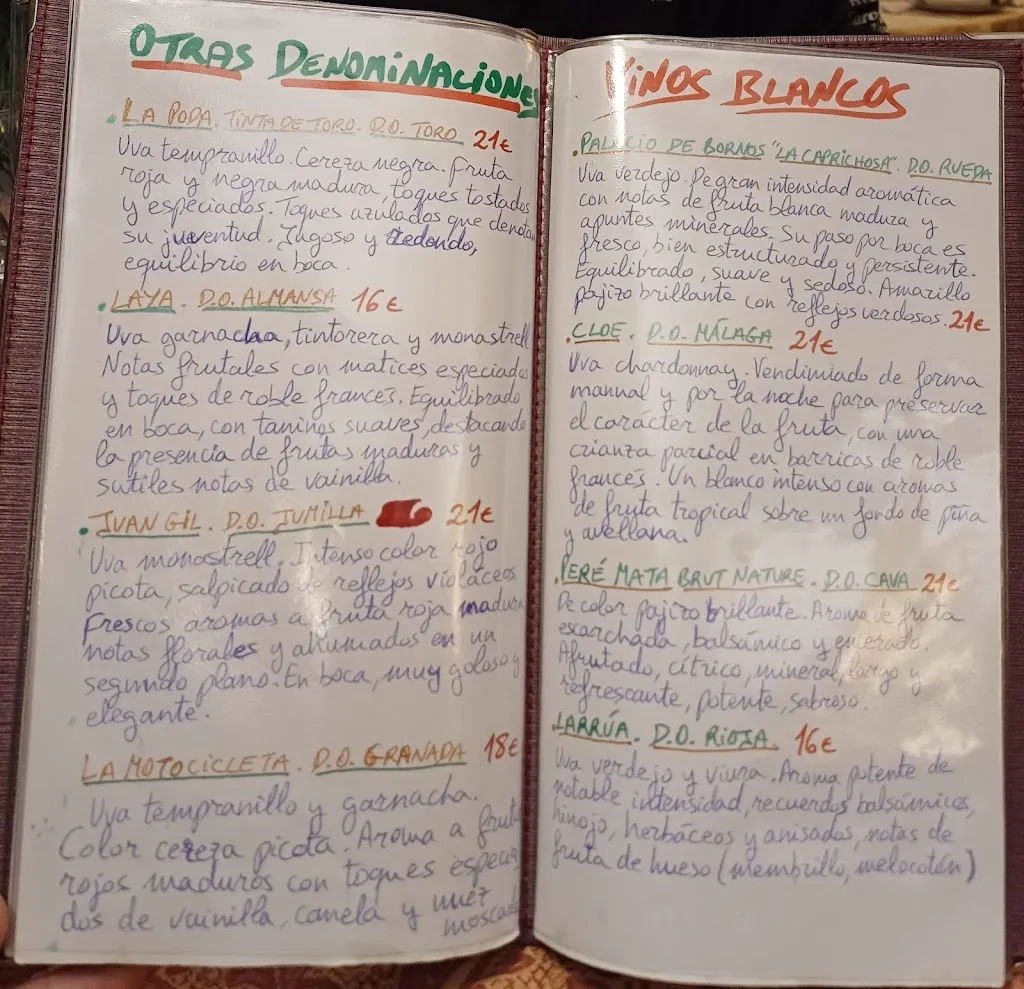 OTRAS DENOMINACIONES
. LA PODA. TINTA DE TORO. D.O. TORO 21€
Uva tempranillo. Cereza negra. fruta
roja y negra madura, toques tostados
y especiados. Toques azulados que denotan
su juventud. Jugoso y redondo,
equilibrio en boca.
. LAYA. D.O. ALMANSA 16€
Uva garnacha, tintorera y monastrell
Notas frutales con matices especiados
y toques de roble francés. Equilibrado
en boca, con taninos suaves, destacando
la presencia de frutas maduras y
sutiles notas de vainilla.
. JUAN GIL. D.O. JUMILLA 21€
Uva monastrell. Intenso color rojo
picota, salpicado de reflejos violáceos
Frescos aromas a fruta roja madura
notas florales y ahumados en un
segundo plano. En boca, muy goloso y
elegante.
LA MOTOCICLETA. D.O. GRANADA 18€
Uva tempranillo y garnacha.
Color cereza picota. Aroma a fruta
rojos maduros con toques especia
dos de vainilla, canela y nuez
moscada
VINOS BLANCOS
. PALACIO DE BORNOS "LA CAPRICHOSA". D.O. RUEDA
Uva verdejo. De gran intensidad aromática
con notas de fruta blanca madura y
apuntes minerales. Su paso por boca es
fresco, bien estructurado y persistente.
Equilibrado, suave y sedoso. Amarillo
pajizo brillante con reflejos verdosos. 21€
. CLOE. D.O. MÁLAGA 21€
Uva chardonnay. Vendimiado de forma
manual y por la noche para preservar
el carácter de la fruta, con una
crianza parcial en barricas de roble
francés. Un blanco intenso con aromas
de fruta tropical sobre un fondo de piña
y avellana.
. PERÉ MATA BRUT NATURE. D.O. CAVA 21€
De color pajizo brillante. Aroma de fruta
escarchada, balsámico y especiado.
Afrutado, cítrico, mineral, largo y
refrescante, potente, sabroso.
. LARRÚA. D.O. RIOJA. 16€
Uva verdejo y viura. Aroma potente de
notable intensidad, recuerdos balsámicos,
hinojo, herbáceos y anisados, notas de
fruta de hueso (membrillo, melocotón)